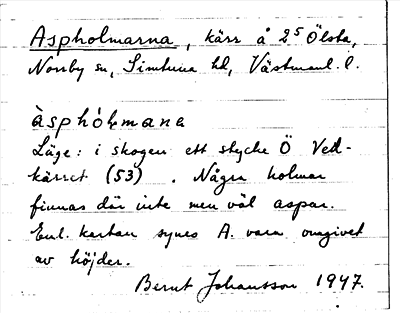 Aspholmarna, kärr å 2⁵ Ölsta,
Norrby sn, Simtuna hd, Västmanl. l.
àsphólmana
Läge: i skogen ett stycke Ö Ved-
kärret (53). Några holmar
finnas där inte men väl aspar.
Enl. kartan synes A. vara omgivet
av höjder.
Bernt Johansson 1947.